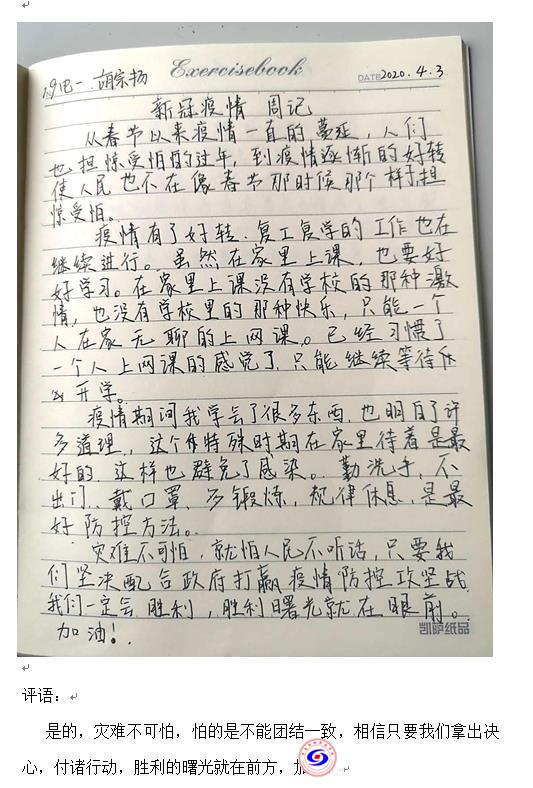 19电一 胡宗扬
Exercisebook
DATE 2020.4.3
新冠疫情 周记
从春节以来疫情一直的蔓延，人们
也担惊受怕的过年，到疫情逐渐的好转
使人民也不在像春节那时候那个样子担
惊受怕。
疫情有了好转，复工复学的工作也在
继续进行。虽然在家里上课，也要好
好学习。在家里上课没有学校的那种激
情，也没有学校里的那种快乐，只能一个
人在家无聊的上网课。已经习惯了
一个人上网课的感觉了，只能继续等待
开学。
疫情期间我学会了很多东西，也明白了许
多道理，这个特殊时期在家里待着是最
好的，这样也避免了感染。勤洗手，不
出门，戴口罩，多锻炼，规律休息，是最
好防控方法。
灾难不可怕，就怕人民不听话，只要我
们坚决配合政府打赢疫情防控攻坚战
我们一定会胜利，胜利曙光就在眼前。
加油！
凯萨纸品
评语：
是的，灾难不可怕，怕的是不能团结一致，相信只要我们拿出决
心，付诸行动，胜利的曙光就在前方，加